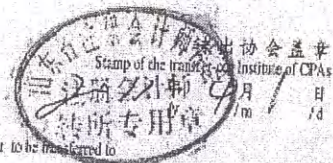 转出协会盖章
Stamp of the transfer-out Institute of CPAs
山东省注册会计师
注册会计师
转所专用章
月 日
/m /d
t to be transferred to